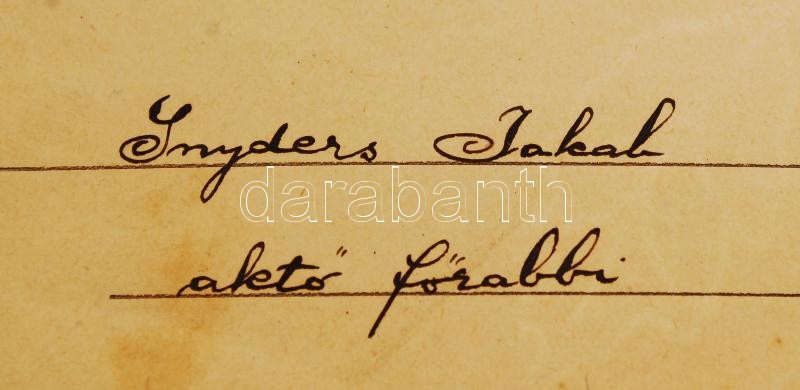 Snyders Jakab
darabanth
aktő főrabbi